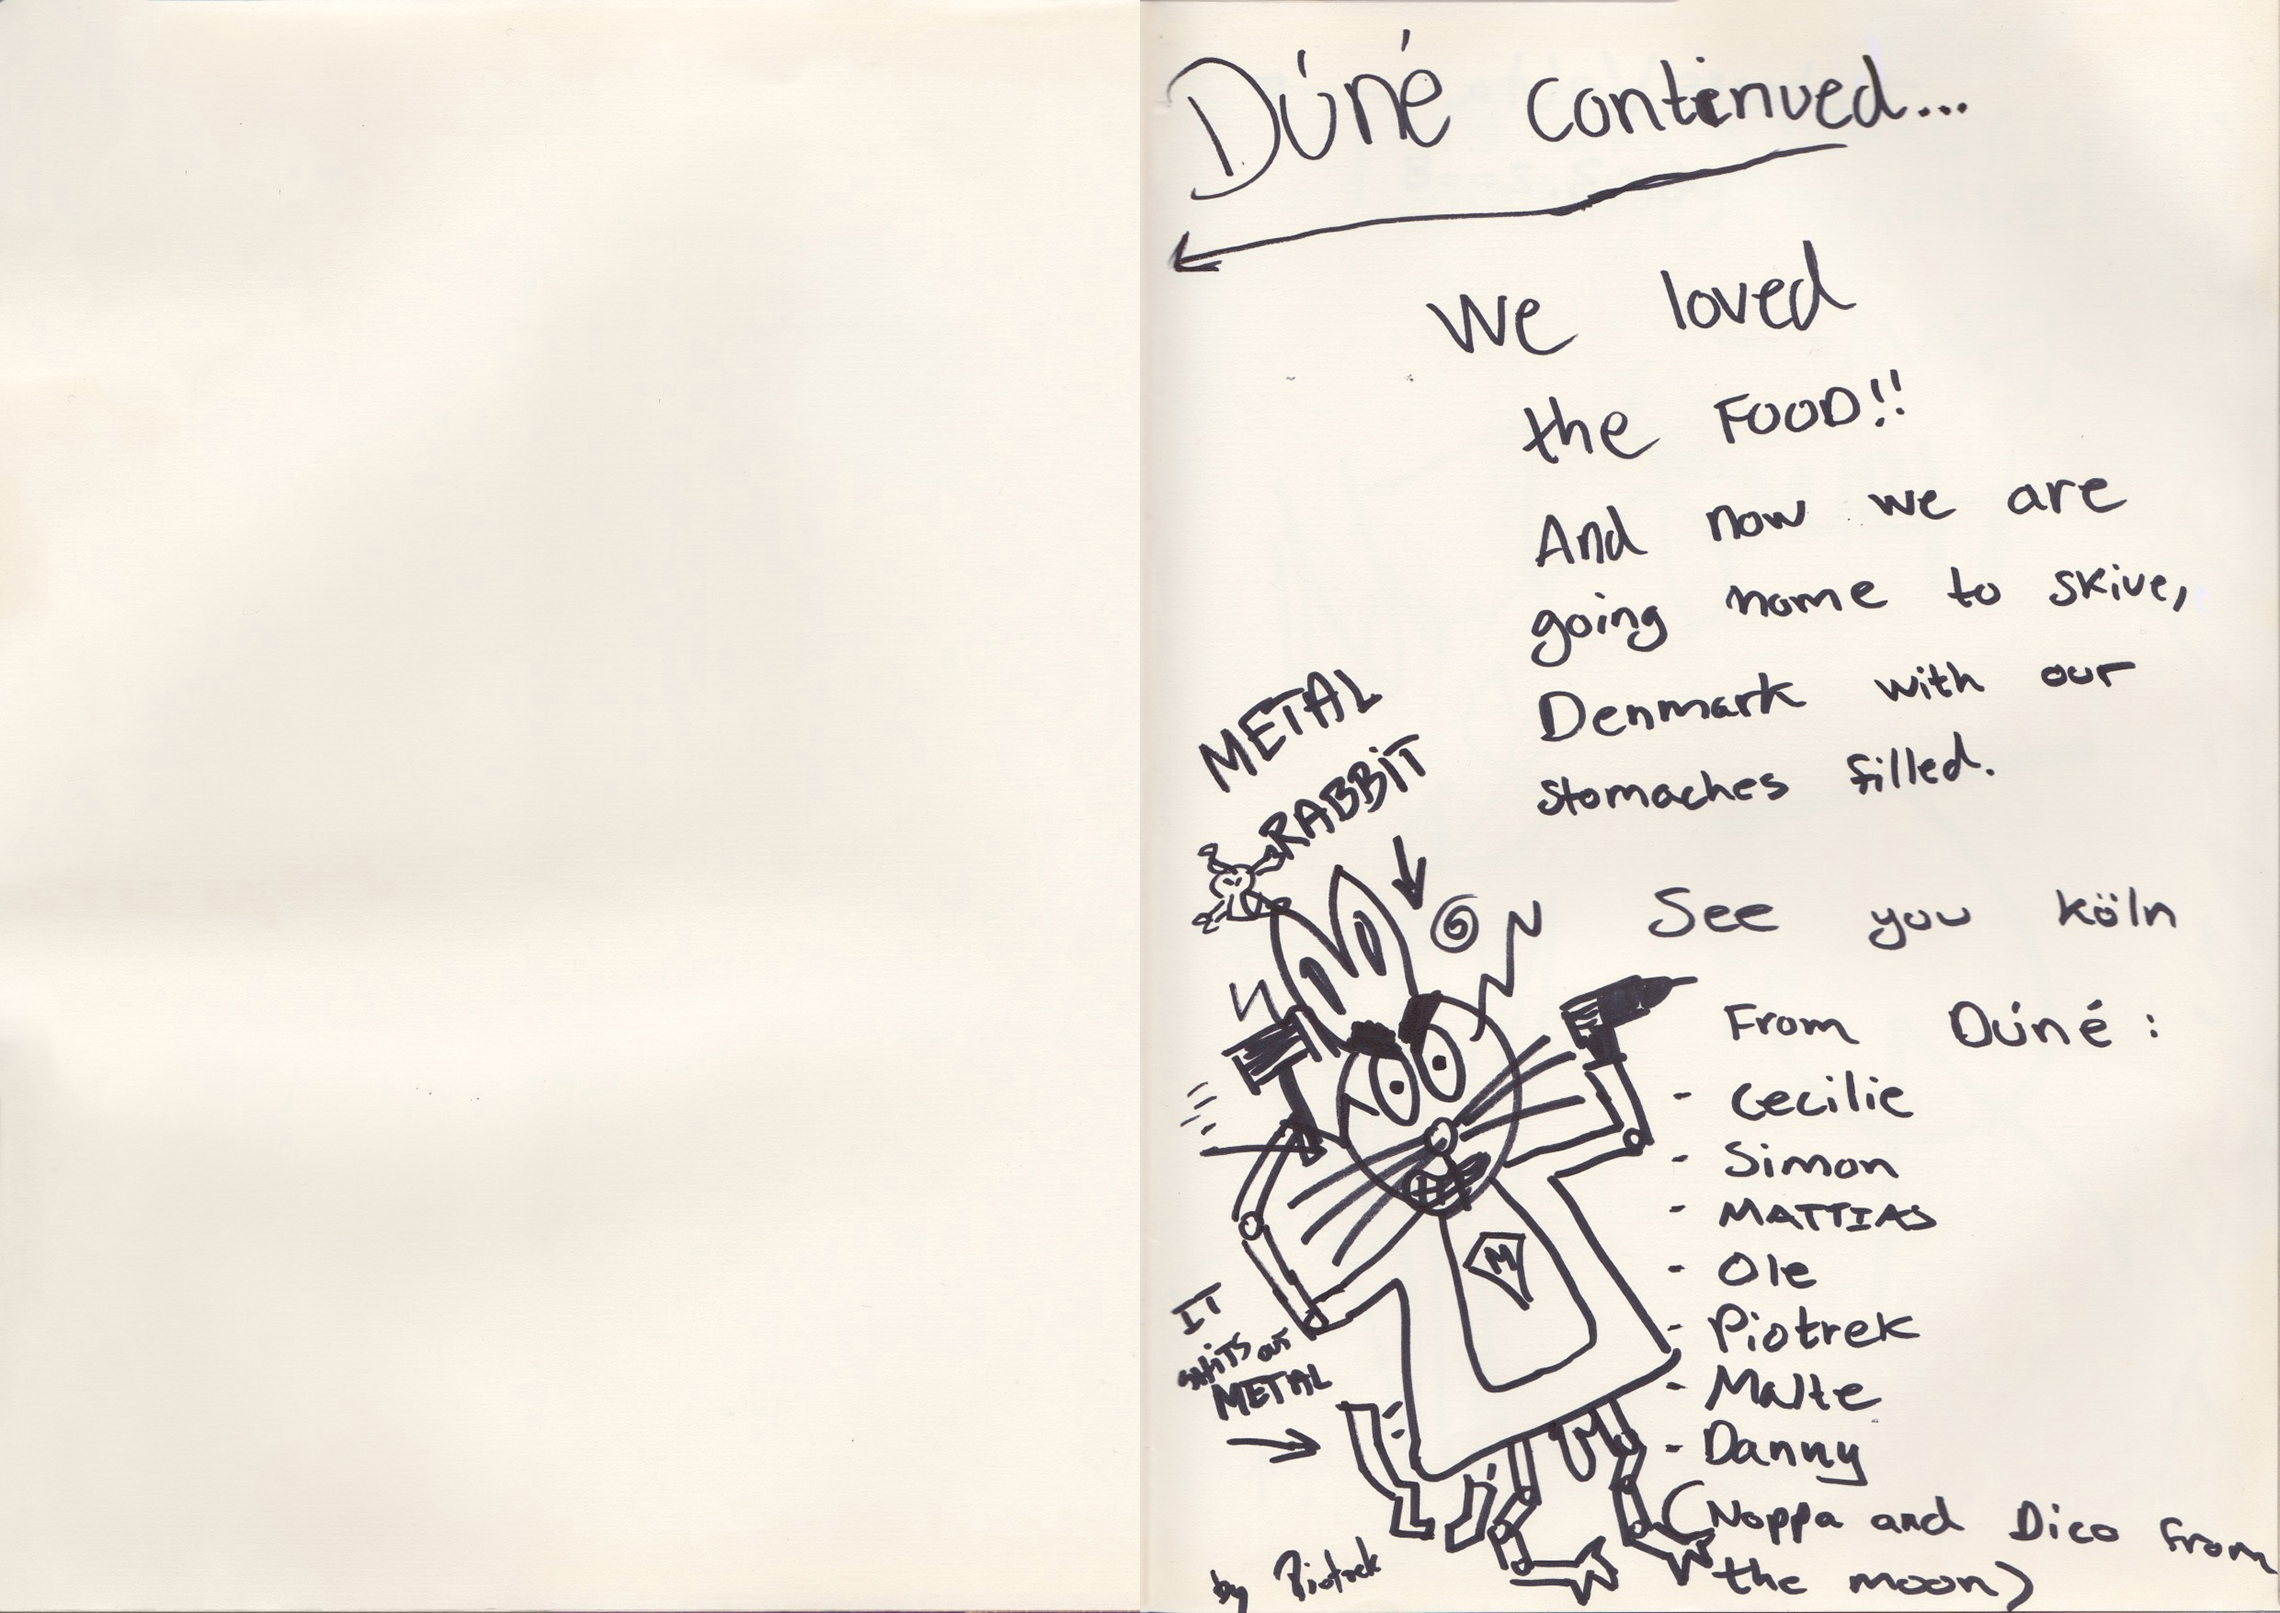 Dúné continued...
We loved
the FOOD!!
And now we are
going home to skive,
Denmark with our
stomaches filled.
METAL
RABBiT
See you köln
From Dúné:
- Cecilie
- Simon
- MATTIAS
- Ole
- Piotrek
- Malte
- Danny
(Noppa and Dico from
the moon)
M
IT
SHiTS out
METAL
by Piotrek